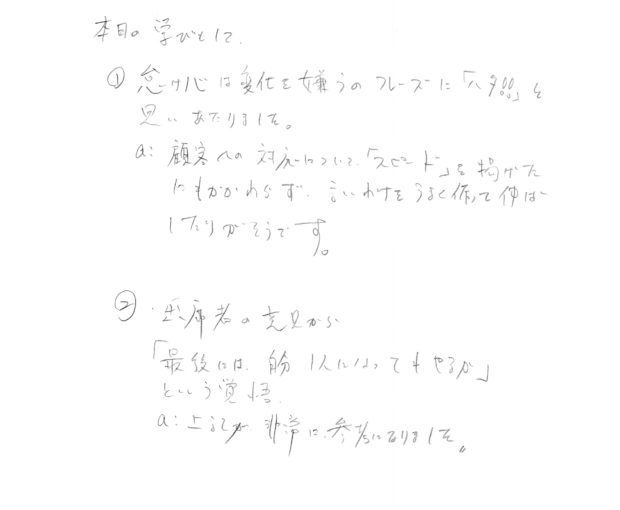 本日の学びとして、
① 怠け心は変化を嫌うのフレーズに「ハッ!!」と
思いあたりました。
a: 顧客への対応について、「スピード」を掲げた
にもかかわらず、言いわけをうまく作って伸ば
したりがそうです。
② ・出席者の意見から
「最後には、自分1人になってもやるか」
という覚悟。
a: 上記が非常に、参考になりました。